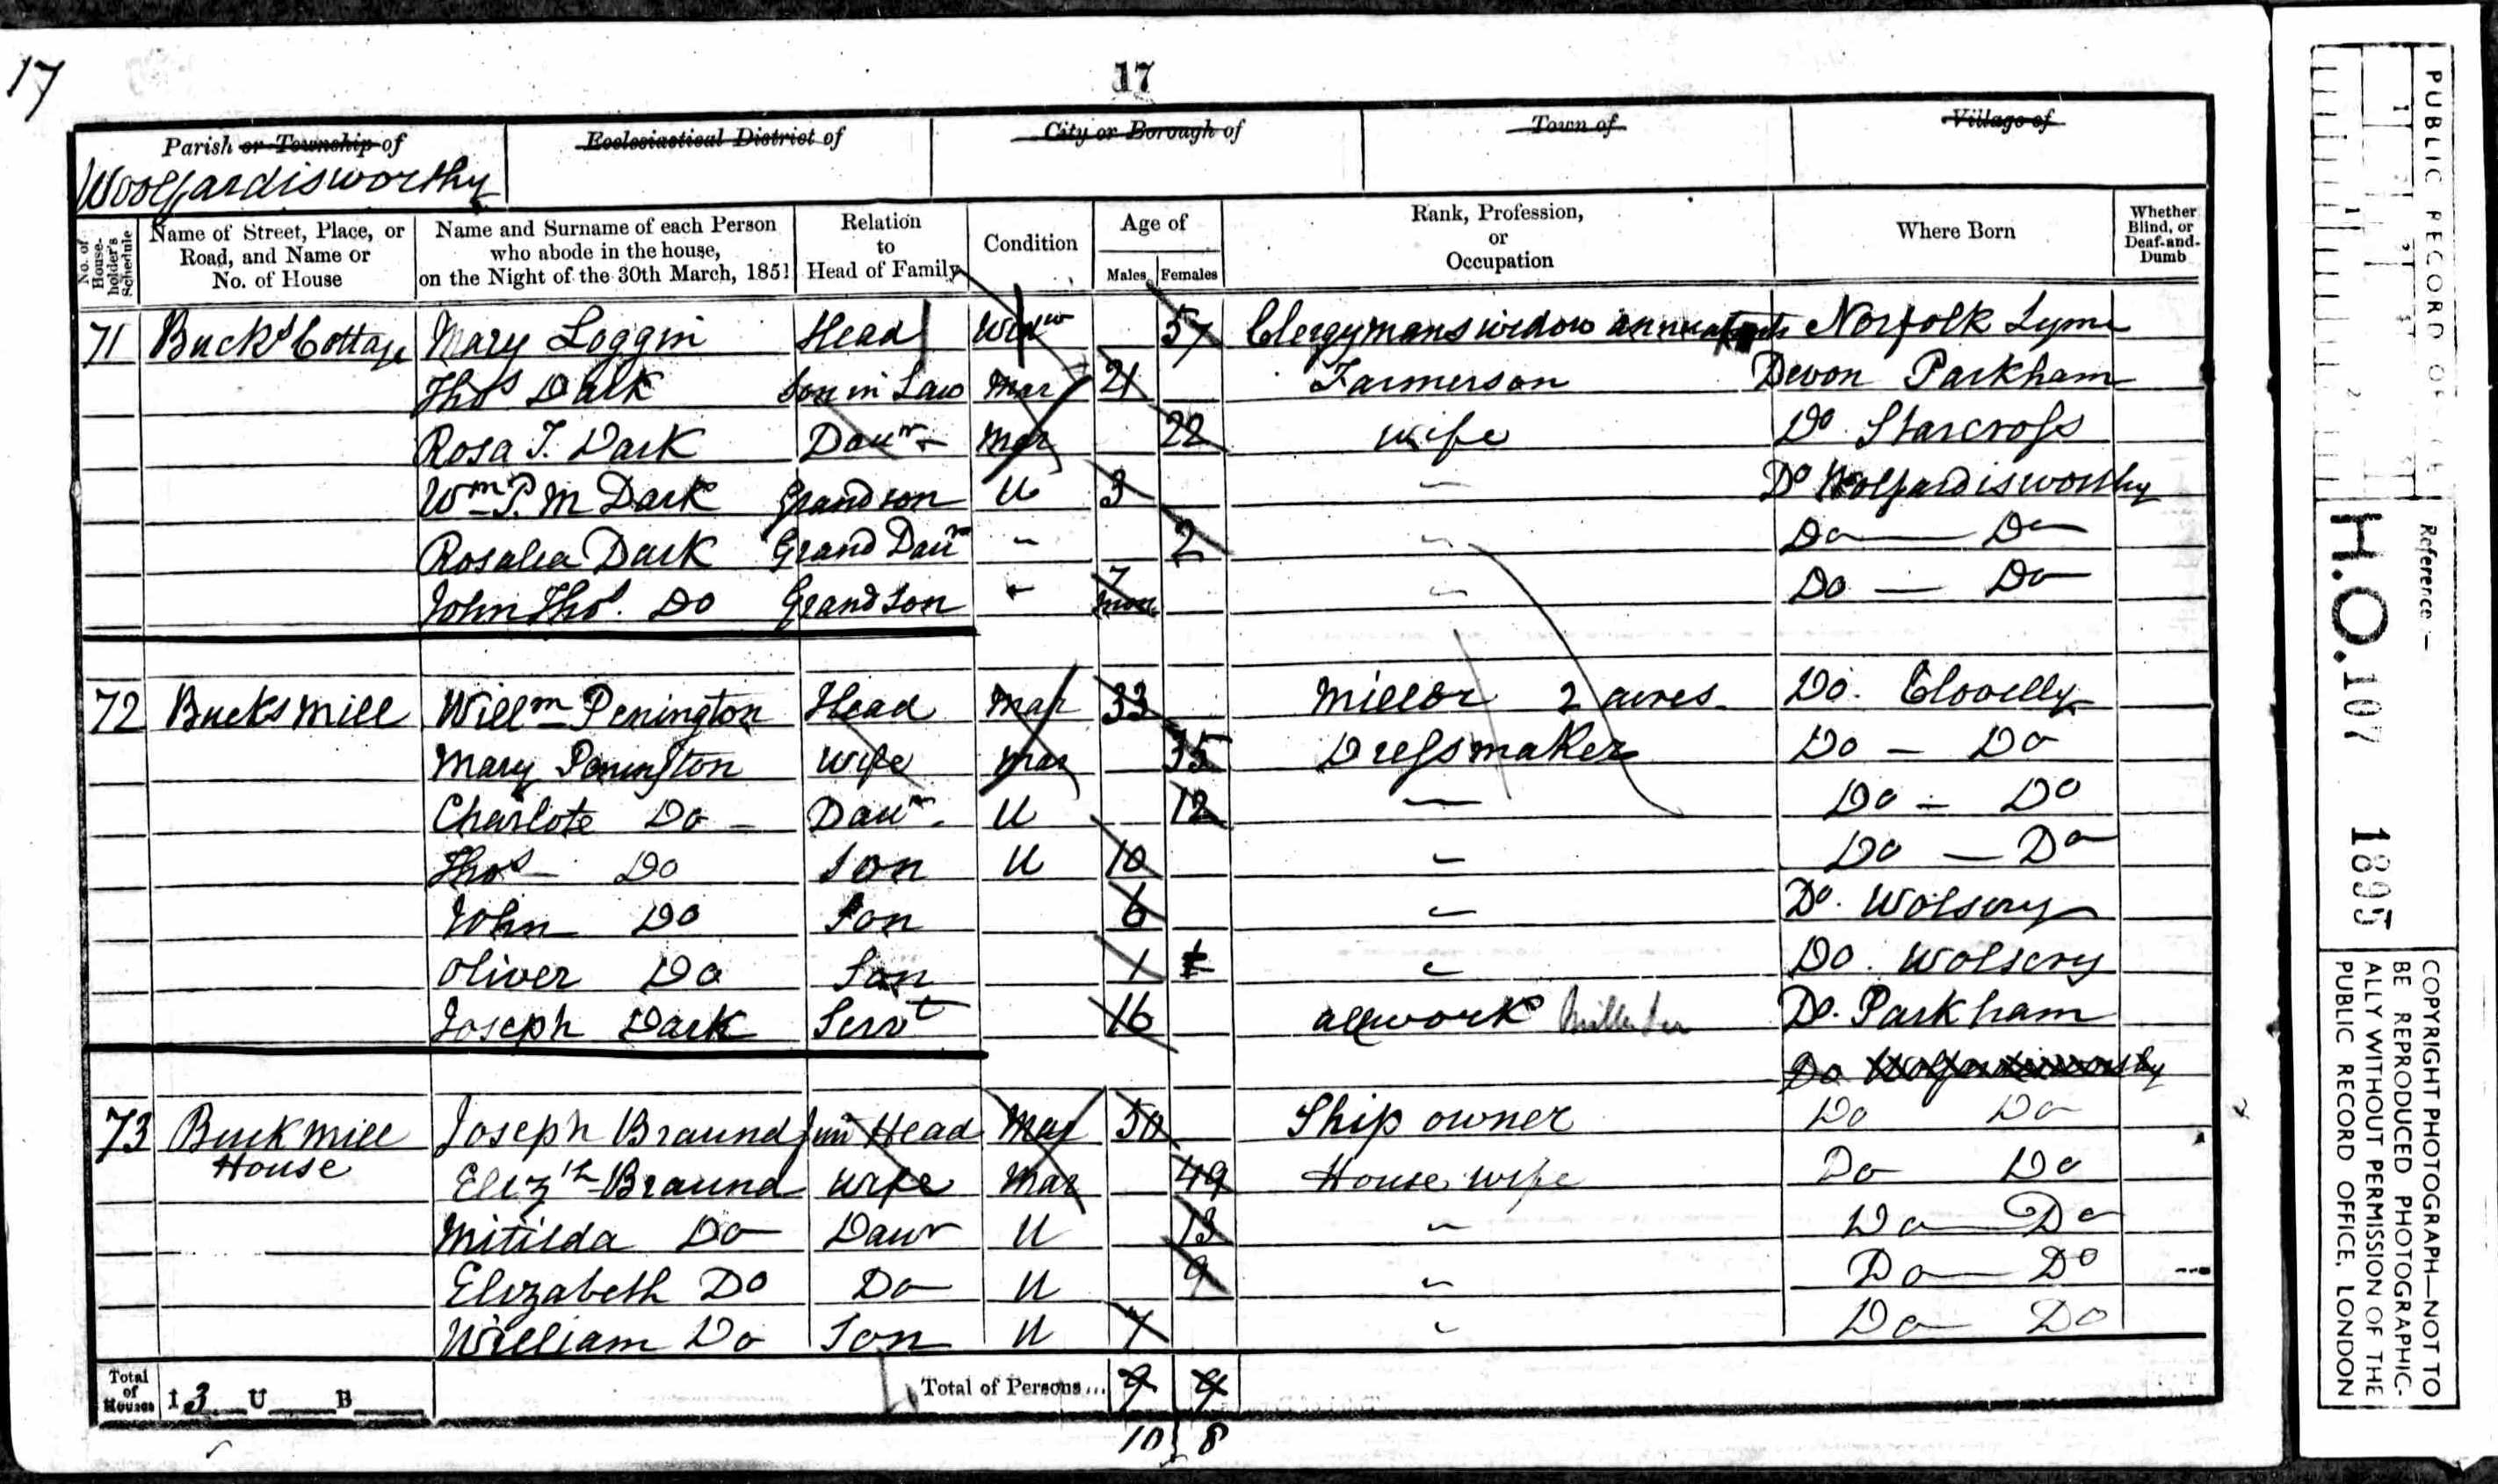 17
17
Parish or Township of
Woolfardisworthy
Ecclesiastical District of
City or Borough of
Town of
Village of
No. of House-holder's Schedule
Name of Street, Place, or Road, and Name or No. of House
Name and Surname of each Person who abode in the house, on the Night of the 30th March, 1851
Relation to Head of Family
Condition
Age of
Males Females
Rank, Profession, or Occupation
Where Born
Whether Blind, or Deaf-and-Dumb
71 Bucks Cottage Mary Loggin Head Widw 57 Clergymans widow Norfolk Lynn
Thos Dark Son in Law Mar 21 Farmerson Devon Parkham
Rosa J. Dark Daur Mar 22 wife Do Starcross
Wm P. M Dark Grandson U 3 Do Wolfardisworthy
Rosalea Dark Grand Daur - 2 Do — Do
John Thos. Do Grandson - 7 mon Do — Do
72 Bucks mill Willm Penington Head Mar 33 Miller 2 acres Do. Clovelly
Mary Penington Wife Mar 35 Dressmaker Do — Do
Charlote Do - Daur U 12 — Do — Do
Thos Do Son U 10 - Do — Do
John Do Son 6 - Do. Wolsery
Oliver Do Son 1 - Do. Wolsery
Joseph Dark Servt 16 allwork Do. Parkham
Do Wolfardisworthy
73 Buckmill House Joseph Braund Jun Head Mar 50 Ship owner Do Do
Elizth Braund Wife Mar 49 House wife Do Do
Mitilda Do Daur U 13 - Do — Do
Elizabeth Do Do U 9 - Do — Do
William Do Son U 7 - Do — Do
Total of Houses I 3 U B
Total of Persons... 9 9
10 8
PUBLIC RECORD OFFICE
Reference :—
H.O. 107 1895
COPYRIGHT PHOTOGRAPH—NOT TO BE REPRODUCED PHOTOGRAPHIC-ALLY WITHOUT PERMISSION OF THE PUBLIC RECORD OFFICE, LONDON